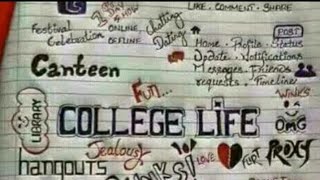 LIKE · COMMENT · SHARE
Festival
Celebration
ONLINE
OFFLINE
Chatting
Dating
POST
Home · Profile · Status
Update · Notifications
Messages · Friends
requests · Timeline
Canteen
Fun...
WINKS
LIBRARY
COLLEGE LIFE
OMG
Jealousy
LOVE
FLIRT
PROXY
hangouts